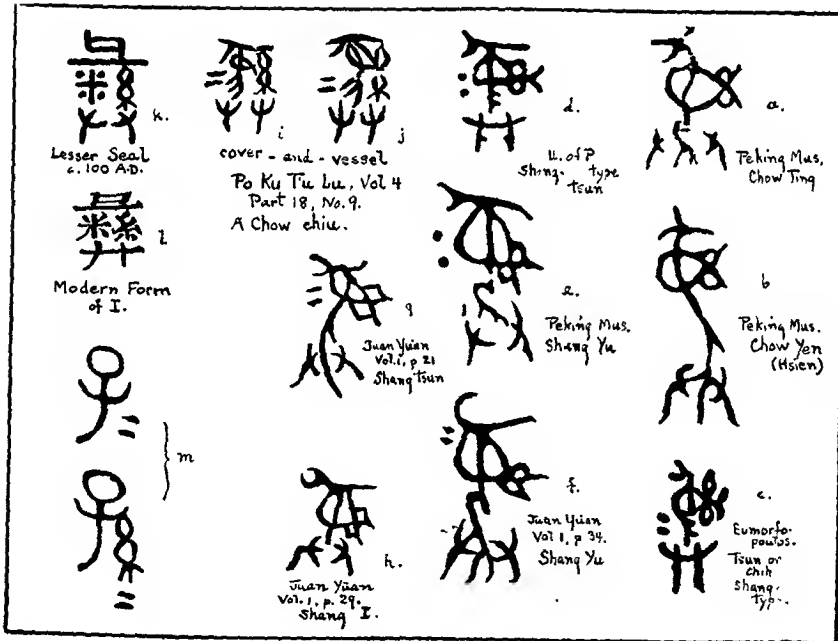 k.
Lesser Seal
c. 100 A.D.
l.
Modern Form
of I.
m
i
j
cover - and - vessel
Po Ku T'u Lu, Vol 4
Part 18, No. 9.
A Chow chiu.
g
Juan Yüan
Vol. 1, p 21
Shang Tsun
h.
Juan Yüan
Vol. 1, p. 29.
Shang I.
d.
U. of P
Shang - type
tsun
e.
Peking Mus.
Shang Yu
f.
Juan Yüan
Vol 1, p 34.
Shang Yu
a.
Peking Mus,
Chow Ting
b
Peking Mus.
Chow Yen
(Hsien)
c.
Eumorfo-
poulos.
Tsun or
Chih
Shang-
typ-.